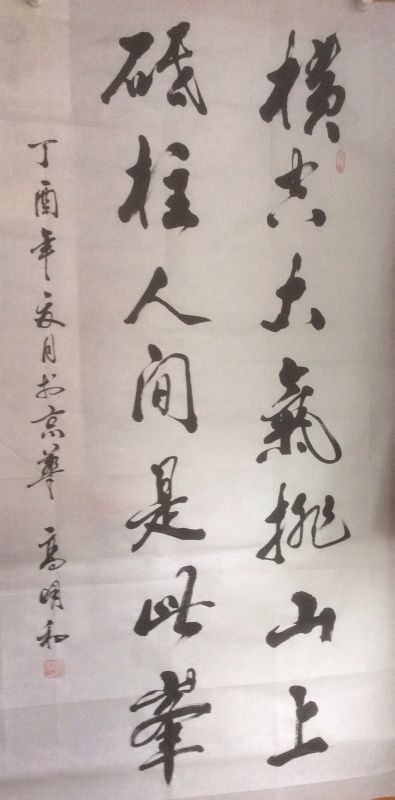 横空大氣排山上
砥柱人间是此峯
丁酉年夏月於京華 高明和